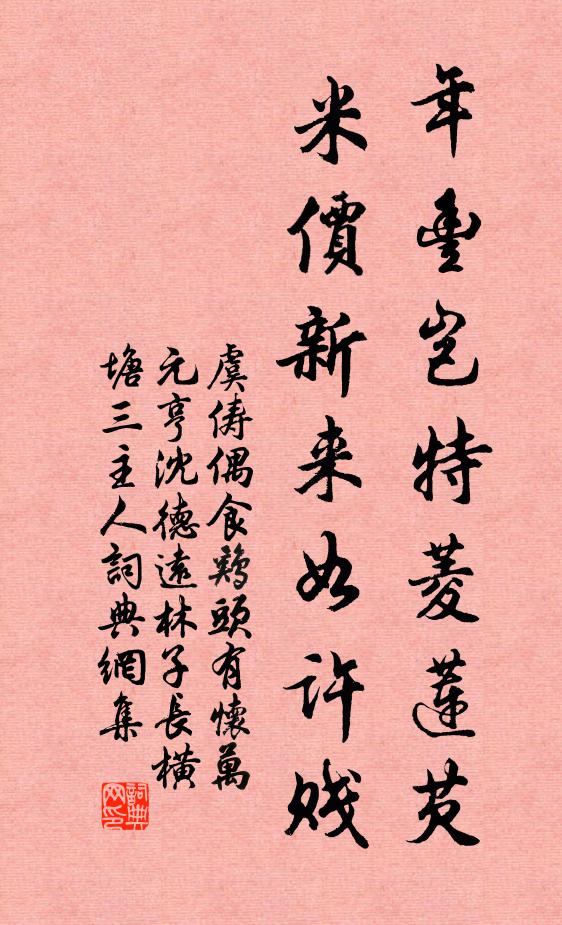 年豐豈特菱蓮芡
米價新来如許賤
虞俦偶食鷄頭有懷萬
元亨沈德遠林子長橫
塘三主人詞典網集
詞典网印